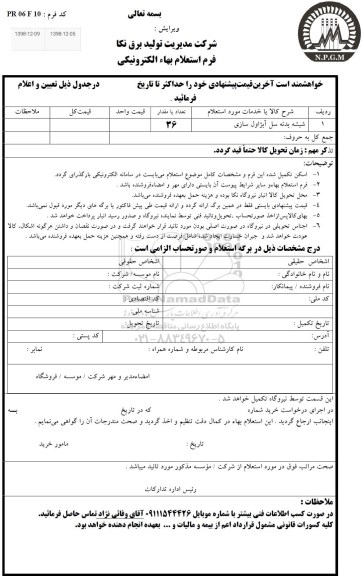 بسمه تعالی
کد فرم : PR 06 F 10
ویرایش :
1398/12/09
1398/12/09
شرکت مدیریت تولید برق نکا
فرم استعلام بهاء الکترونیکی
N.P.G.M
خواهشمند است آخرین قیمت پیشنهادی خود را حداکثر تا تاریخ درجدول ذیل تعیین و اعلام
فرمائید .
ردیف شرح کالا یا خدمات مورد استعلام تعداد یا مقدار قیمت واحد قیمت کل ملاحظات
۱ شیشه بدنه سل آبژاول سازی ۳۶
جمع کل به حروف:
تذکر مهم : زمان تحویل کالا حتماً قید گردد.
توضیحات:
۱- اسکن تکمیل شده این فرم و مشخصات کامل موضوع استعلام می‌بایست در سامانه الکترونیکی بارگذاری گردد.
۲- فرم استعلام بهاءو سایر شرایط پیوست آن بایستی دارای مهر و امضاءفروشنده باشد .
۳- محل تحویل کالا انبار نیروگاه نکا بوده و هزینه حمل بعهده فروشنده می‌باشد.
۴- قیمت پیشنهادی بایستی فقط در همین برگه ارائه گردد و ارائه قیمت طی پیش فاکتور یا برگه های دیگر مورد قبول نمی‌باشد.
۵- بهای کالاپس ازاخذ صورتحساب ،تحویل وتائید فنی توسط نماینده نیروگاه و صدور رسید انبار پرداخت خواهد شد .
۶- اجناس تحویلی در نیروگاه در صورت اصلی بودن مورد تائید قرار خواهند گرفت و در صورت نقصان و داشتن هرگونه اشکال، کالا
عودت خواهد شد و جبران خسارت ایجاد شده شامل فرصت از دست رفته و همچنین هزینه حمل بعهده فروشنده می‌باشد .
درج مشخصات ذیل در برگه استعلام و صورتحساب الزامی است :
اشخاص حقیقی اشخاص حقوقی
نام و نام خانوادگی : نام موسسه/ شرکت :
نام فروشنده / پیمانکار: شماره ثبت شرکت :
کد ملی: کد اقتصادی :
شناسه ملی:
تاریخ تکمیل : تاریخ تحویل:
آدرس: کد پستی :
تلفن : نام کارشناس مربوطه و شماره همراه : نمابر :
ParsNamadData
۰۲۱-۸۸۳۴۹۶۷۰-۵
امضاءمدیر و مهر شرکت / موسسه / فروشگاه
این قسمت توسط نیروگاه تکمیل خواهد شد .
در اجرای درخواست خرید شماره که در تاریخ بسه
اینجانب ارجاع گردید . این استعلام بهاء در کمال دقت تنظیم و اخذ گردید و صحت مندرجات آن را گواهی می‌نمایم .
تاریخ : مامور خرید
صحت مراتب فوق در مورد استعلام از شرکت / مؤسسه مذکور مورد تائید میباشد .
رئیس اداره تدارکات
ملاحظات :
در صورت کسب اطلاعات فنی بیشتر با شماره موبایل ۰۹۱۱۱۵۴۴۴۲۶ آقای وفائی نژاد تماس حاصل فرمائید.
کلیه کسورات قانونی مشمول قرارداد اعم از بیمه و مالیات و ... بعهده انجام دهنده خواهد بود.